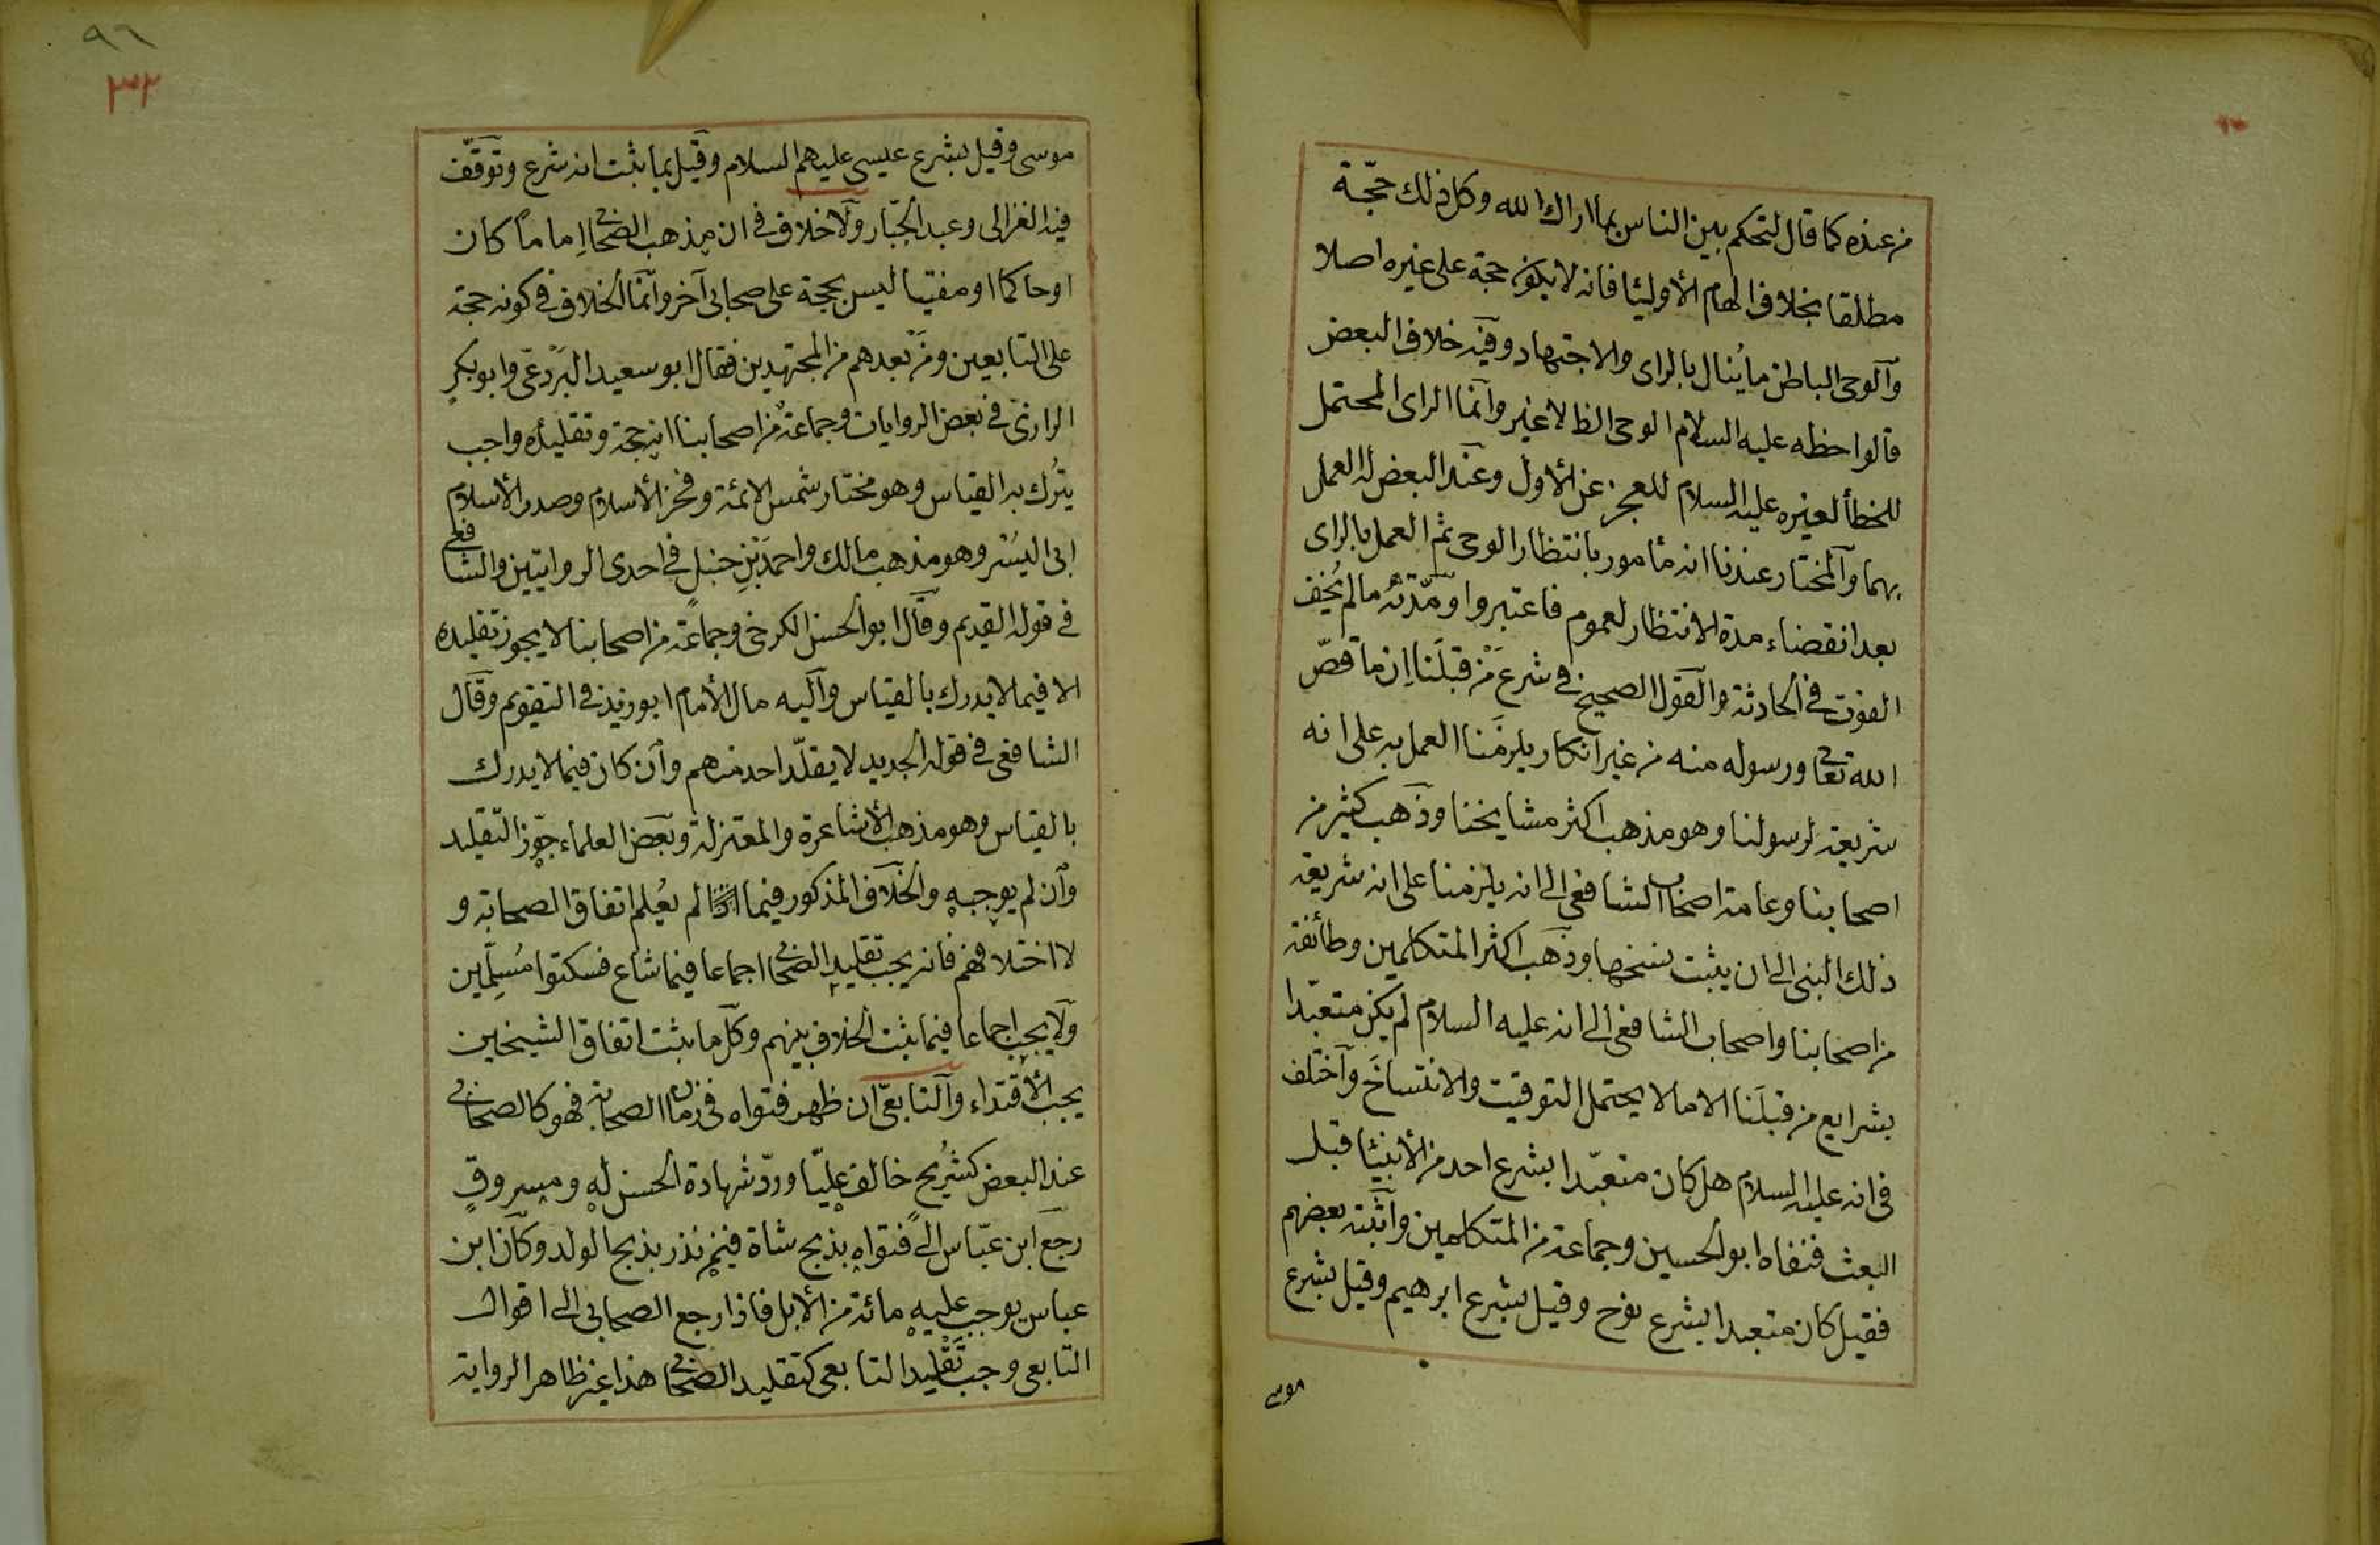 من عنده كما قال لتحكم بين الناس بما اراك الله وكل ذلك حجّة
مطلقا بخلاف الهام الأوليا فانه لا يكون حجة على غيره اصلا
وآلوحى الباطن ما يُنال بالراى والاجتهاد وفيه خلاف البعض
قالوا حظه عليه السلام الوحى الظ لا غير وآنما الراى المحتمل
للخطأ لغيره عليه السلام للعجز عن الأول وعند البعض له العمل
بهما وآلمختار عندنا انه مأمور بانتظار الوحى ثم العمل بالراى
بعد انقضاء مدة الانتظار لعموم فاعتبروا ومدّته ما لم يُخف
الفوت فى الحادثة وآلقول الصحيح فى شرع مَنْ قبلَنا اِن ما قصّ
الله تعا ورسوله منه من غير انكار يلزمَنا العمل به على انه
شريعة لرسولنا وهو مذهب اكثر مشايخنا وذهب كثير من
اصحابنا وعامة اصحاب الشافعى الى انه يلزمنا على انه شريعة
ذلك النبى الى ان يثبت نسخها وذهب اكثر المتكلمين وطائفة
من اصحابنا واصحاب الشافعى الى انه عليه السلام لم يكن متعبّدا
بشرايع من قبلَنا الا ما لا يحتمل التوقيت والانتساخَ وآختلف
فى انه عليه السلام هل كان متعبّدا بشرع احد من الأنبيا قبل
البعث فنفاه ابو الحسين وجماعة من المتكلمين وآثبته بعضهم
فقيل كان متعبدا بشرع نوح وقيل بشرع ابرهيم وقيل بشرع
موسى
٩٦
٣٢
موسى وقيل بشرع عيسى عليهم السلام وقيل بما ثبت انه شرع وتوقّف
فيه الغزالى وعبد الجبّار ولا خلاف فى ان مذهب الصحا اِماماً كان
اوحاكما او مفتيا ليس بحجة على صحابى آخر وآنما الخلاف فى كونه حجة
على التابعين ومَنْ بعدهم من المجتهدين فقال ابو سعيد البَرْدعى وابو بكرٍ
الرازى فى بعض الروايات وجماعةٌ من اصحابنا انه حجة وتقليدُه واجب
يتُرك به القياس وهو مختار شمس الائمة وفخر الأسلام وصدر الأسلام
ابى اليُسْر وهو مذهب مالك واحمدَ بْنِ حنبلٍ فى احدى الروايتين والشافعى
فى قوله القديم وقال ابو الحسن الكرخى وجماعةٌ من اصحابنا لا يجوز تقليده
الا فيما لا يدرك بالقياس وآليه مال الأمام ابو زيد فى التقويم وقال
الشافعى فى قوله الجديد لا يقلّد احد منهم وآن كان فيما لا يدرك
بالقياس وهو مذهب الأشاعرة والمعتزلة وبعض العلماء جوّز التقليد
وآن لم يوجبه وآلخلاف المذكور فيما لم يُعلم اتفاق الصحابة و
لا اختلافهم فانه يجب تقليد الصحا اجماعا فيما شاع فسكتوا مُسلّمين
ولا يجب اجماعا فيما ثبت الخلاف بينهم وكل ما ثبت اتفاق الشيخين
يجب الأقتداء وآلتابعىّ ان ظهر فتواه فى زمان الصحابة فهو كالصحابى
عند البعض كشُريح خالف عليّا وردّ شهادة الحسن له ومسروقٍ
رجع ابن عبّاس الى فتواه بذبح شاة فيمن نذر بذبح الولد وكان ابن
عباس يوجب عليه مائة من الأبل فاذا رجع الصحابى الى اقوال
التابعى وجب تقليد التابعى كتقليد الصحا هذا غير ظاهر الرواية